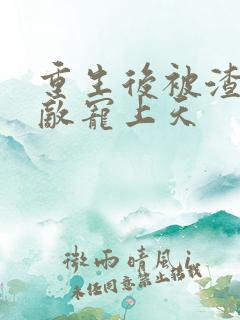 重生後被渣
敵寵上天
微雨晴風i
未任同意禁止轉載